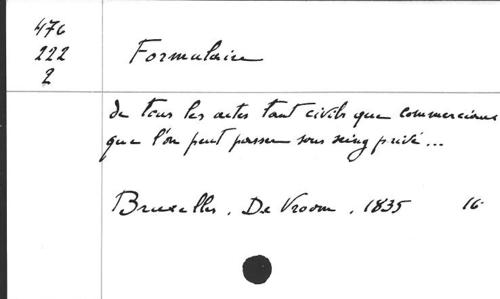 476
222
2
Formulaire
de tous les actes tant civils que commerciaux
que l'on peut passer sous seing privé...
Bruxelles. De Vroom. 1835 16